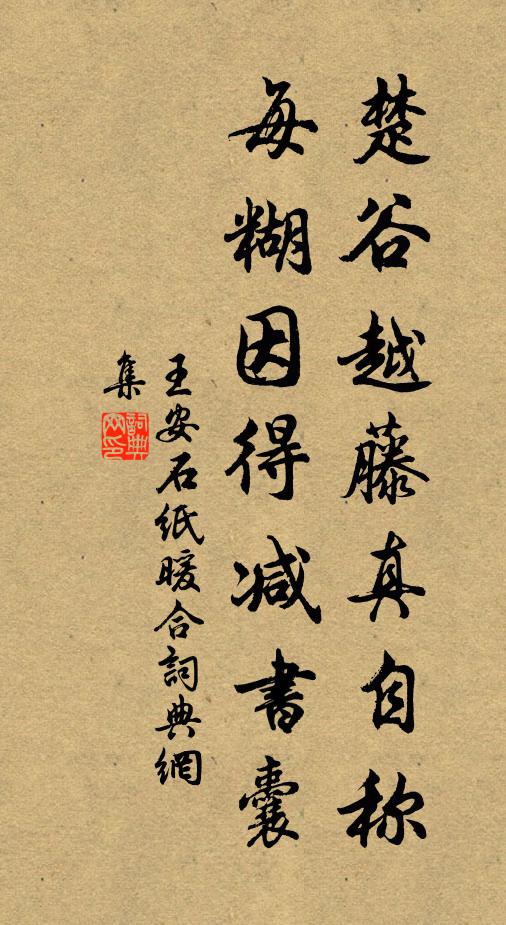 楚谷越藤真自称
每糊因得减書囊
王安石紙暖合詞典網
集
詞典網印